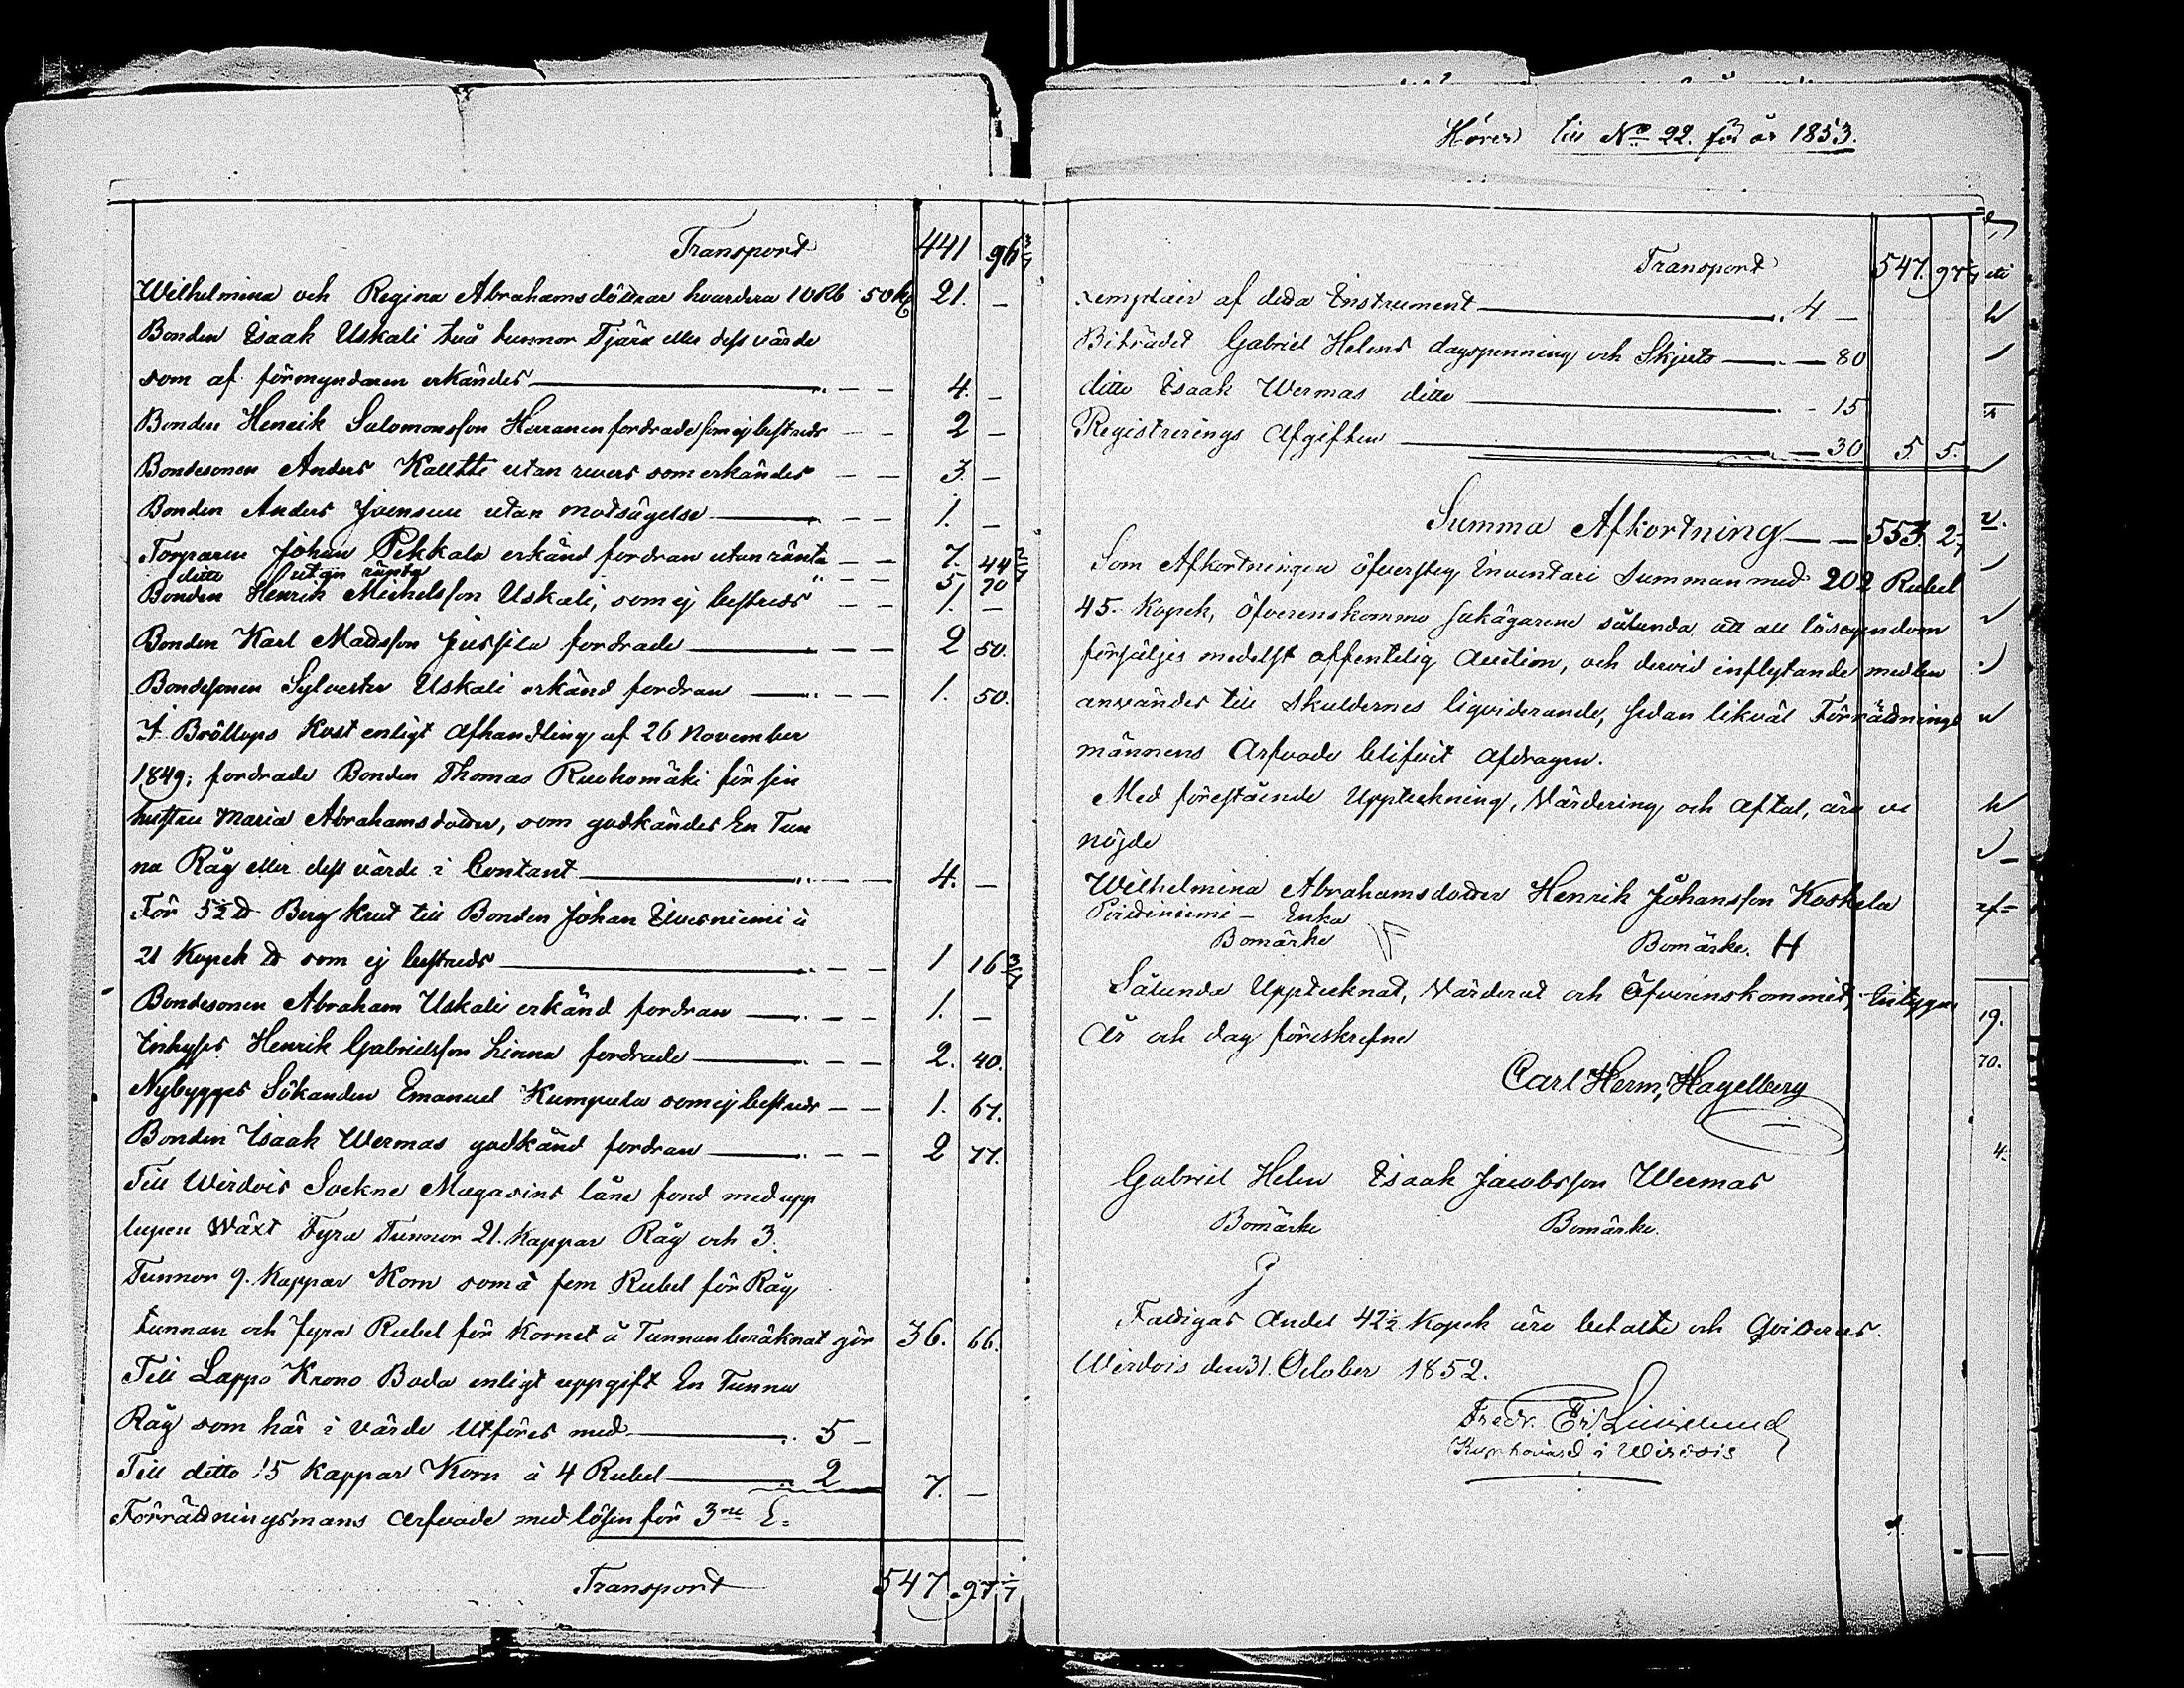 Transport 441 96 3/7
Wilhelmina och Regina Abrahamsdöttrar hvardera 10 Rb 50 k 21. –
Bonden Isaak Uskali två tunnor Tjära eller dess värde
som af förmyndaren erkändes 4. –
Bonden Henrik Salomonsson Haranen fordrade som ej bestreds 2 –
Bondesonen Anders Kallste utan revers som erkändes 3. –
Bonden Anders Jvensuu utan motsägelse 1. –
Torparen Johan Pekkala erkänd fordran utan ränta 7. 44 2/7
ditto utan ränta 5 70
Bonden Henrik Michelsson Uskali, som ej bestreds 1. –
Bonden Karl Mattsson Jussila fordrade 2 50.
Bondesonen Sylvester Uskali erkänd fordran 1. 50.
I Bröllops Kost enligt Afhandling af 26 November
1849; fordrade Bonden Thomas Ruohomäki för sin
hustru Maria Abrahamsdotter, som godkändes En Tun
na Råg eller dess värde i Contant 4. –
För 5½ ℔ Berg krut till Bonden Johan Elusniemi à
21 Kopek ℔ som ej bestreds 1 16 3/7
Bondesonen Abraham Uskali erkänd fordran 1. –
Inhyses Henrik Gabrielsson Liana fordrade 2. 40.
Nybygges Sökanden Emanuel Kumpula som ej bestreds 1. 67.
Bonden Isaak Wermas godkänd fordran 2 77.
Till Wirdois Sockne Magasins låne fond med upp
lupen Växt Fyra Tunnor 21. Kappar Råg och 3.
Tunnor 9. Kappar Korn som à fem Rubel för Råg
tunnan och fyra Rubel för Kornet à Tunnan beräknat gör 36. 66.
Till Lappo Krono Boda enligt uppgift En Tunna
Råg som här i värde Utföres med 5 –
Till ditto 15 Kappar Korn à 4 Rubel 2 7. –
Förrättningsmans Arfvode med lösen för 3ne E=
Transport 547 97 1/7
Hörer till No 22. för år 1853.
Transport 547. 97 1/7
xemplair af detta Instrument 4 –
Biträdet Gabriel Helens dagspenning och Skjuts 80
ditto Isaak Wermas ditto 15
Registrerings Afgiften 30 5. 5.
Summa Afkortning 553. 2 1/7
Som Afkortningen öfversteg Inventari Summan med 202 Rubel
45. Kopek, öfverenskommo Sakägarene sålunda, att all lösegendom
försäljes medelst offentelig Auction, och dervid inflytande medlen
användes till Skuldernes liqviderande, sedan likväl Förrättnings
männens Arfvode blifvit Afdragen.
Med förestående Uppteckning, Värdering och Aftal, äro vi
nöjde
Wilhelmina Abrahamsdotter Henrik Johansson Koskela
Enka
Bomärke Bomärke. H
Sålunda Upptecknat, Värderat och Öfverenskommit, betygar
År och dag föreskrefne
Carl Herm. Hagelberg
Gabriel Helen Isaak Jacobsson Wermas
Bomärke Bomärke.
Fattigas Andel 42½ Kopek äro betalte och Qvitteras.
Wirdois den 31. October 1852.
Fredr.
i Wirdois
19.
70.
4.